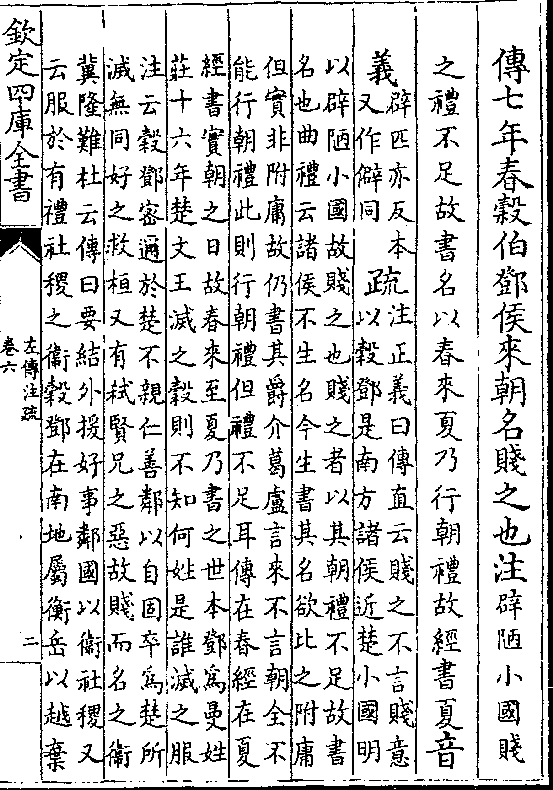 傳七年春穀伯鄧侯來朝名賤之也注辟陋小國賤
之禮不足故書名以春來夏乃行朝禮故經書夏音
義辟匹亦反本
又作僻同疏注正義曰傳直云賤之不言賤意
以穀鄧是南方諸侯近楚小國明
以辟陋小國故賤之也賤之者以其朝禮不足故書
名也曲禮云諸侯不生名今生書其名欲比之附庸
但實非附庸故仍書其爵介葛盧言來不言朝全不
能行朝禮此則行朝禮但禮不足耳傳在春經在夏
經書實朝之日故春來至夏乃書之世本鄧為曼姓
莊十六年楚文王滅之穀則不知何姓是誰滅之服
注云穀鄧密邇於楚不親仁善鄰以自固卒為楚所
滅無同好之救桓又有弒賢兄之惡故賤而名之衞
冀隆難杜云傳曰要結外援好事鄰國以衞社稷又
云服於有禮社稷之衞穀鄧在南地屬衡岳以越棄
欽定四庫全書
左傳注疏
卷六
二